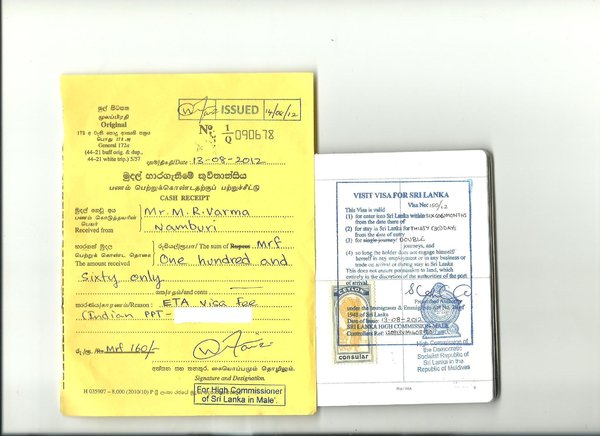 මුල් පිටපත
மூலப்பிரதி
Original
General 172a
(44-21 buff orig. & dup.,
44-21 white trip.) 5/57
ISSUED 14/08/12
No. 1/Q 090678
Date: 13-08-2012
මුදල් භාරගැනීමේ කුවිතාන්සිය
பணம் பெற்றுக்கொண்டதற்குப் பற்றுச்சீட்டு
CASH RECEIPT
Received from Mr. M. R. Varma
Namburi
The amount received The sum of Rupees Mrf
One hundred and
Sixty only
Reason: ETA visa fee
(Indian PPT-
Mrf 160/-
Signature and Designation.
H 035907 - 8,000 (2010/10)
For High Commissioner
of Sri Lanka in Male'.
VISIT VISA FOR SRI LANKA
Visa No: 160/12
This Visa is valid
(1) for entry into Sri Lanka within SIX (06) MONTHS
from the date there of
(2) for stay in Sri Lanka for THIRTY (30) DAYS
from the date of entry
(3) for single journey/ DOUBLE
journeys, and
(4) so long the holder does not engage himself/
herself in any employment or in any business or
trade on arrival or during stay in Sri Lanka
This does not assure permission to land, which
is entirely in the discretion of the authorities of the port
of arrival.
Prescribed Authority
under the Immigrants & Emmigrants Act No. 20 of
1948 of Sri Lanka
Date of Issue: 13-08-2012
SRI LANKA HIGH COMMISSION-MALE'
consular
High Commission of
the Democratic
Socialist Republic of
Sri Lanka in the
Republic of Maldives